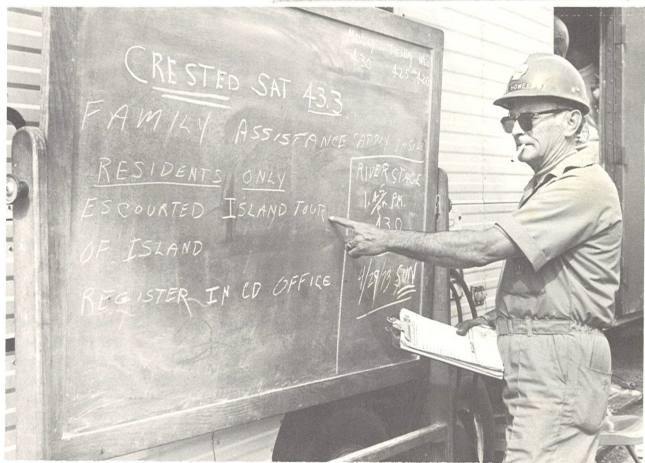 CRESTED SAT 43.3
FAMILY ASSISTANCE APPLY INSIDE
RESIDENTS ONLY
ESCOURTED ISLAND TOUR
OF ISLAND
REGISTER IN CD OFFICE
RIVER STAGE
P.M.
43.0
4/29/73 SUN